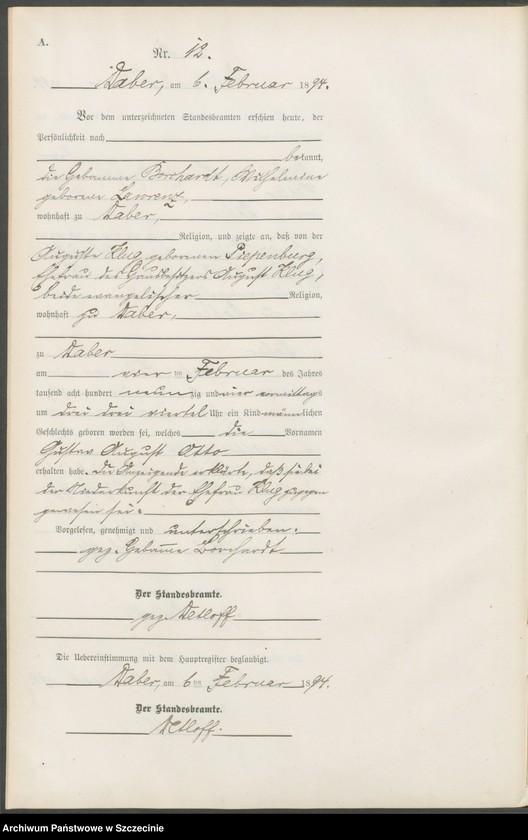 A.
Nr. 12.
Daber, am 6. Februar 1894.
Vor dem unterzeichneten Standesbeamten erschien heute, der
Persönlichkeit nach
bekannt,
die Hebamme Borchardt, Wilhelmine
geborene Lawrenz,
wohnhaft zu Daber,
Religion, und zeigte an, daß von der
Auguste Klug geborenen Piepenburg,
Ehefrau des Grundbesitzers August Klug,
beide evangelischer Religion,
wohnhaft zu Daber,
zu Daber
am vier ten Februar des Jahres
tausend acht hundert neunzig und vier vormittags
um drei drei viertel Uhr ein Kind männlichen
Geschlechts geboren worden sei, welches die Vornamen
Gustav August Otto
erhalten habe. Die Anzeigende erklärte, daß sie bei
der Niederkunft der Ehefrau Klug zugegen
gewesen sei.
Vorgelesen, genehmigt und unterschrieben:
gez. Hebamme Borchardt
Der Standesbeamte.
gez.
Die Uebereinstimmung mit dem Hauptregister beglaubigt.
Daber, am 6 ten Februar 1894.
Der Standesbeamte.
Archiwum Państwowe w Szczecinie